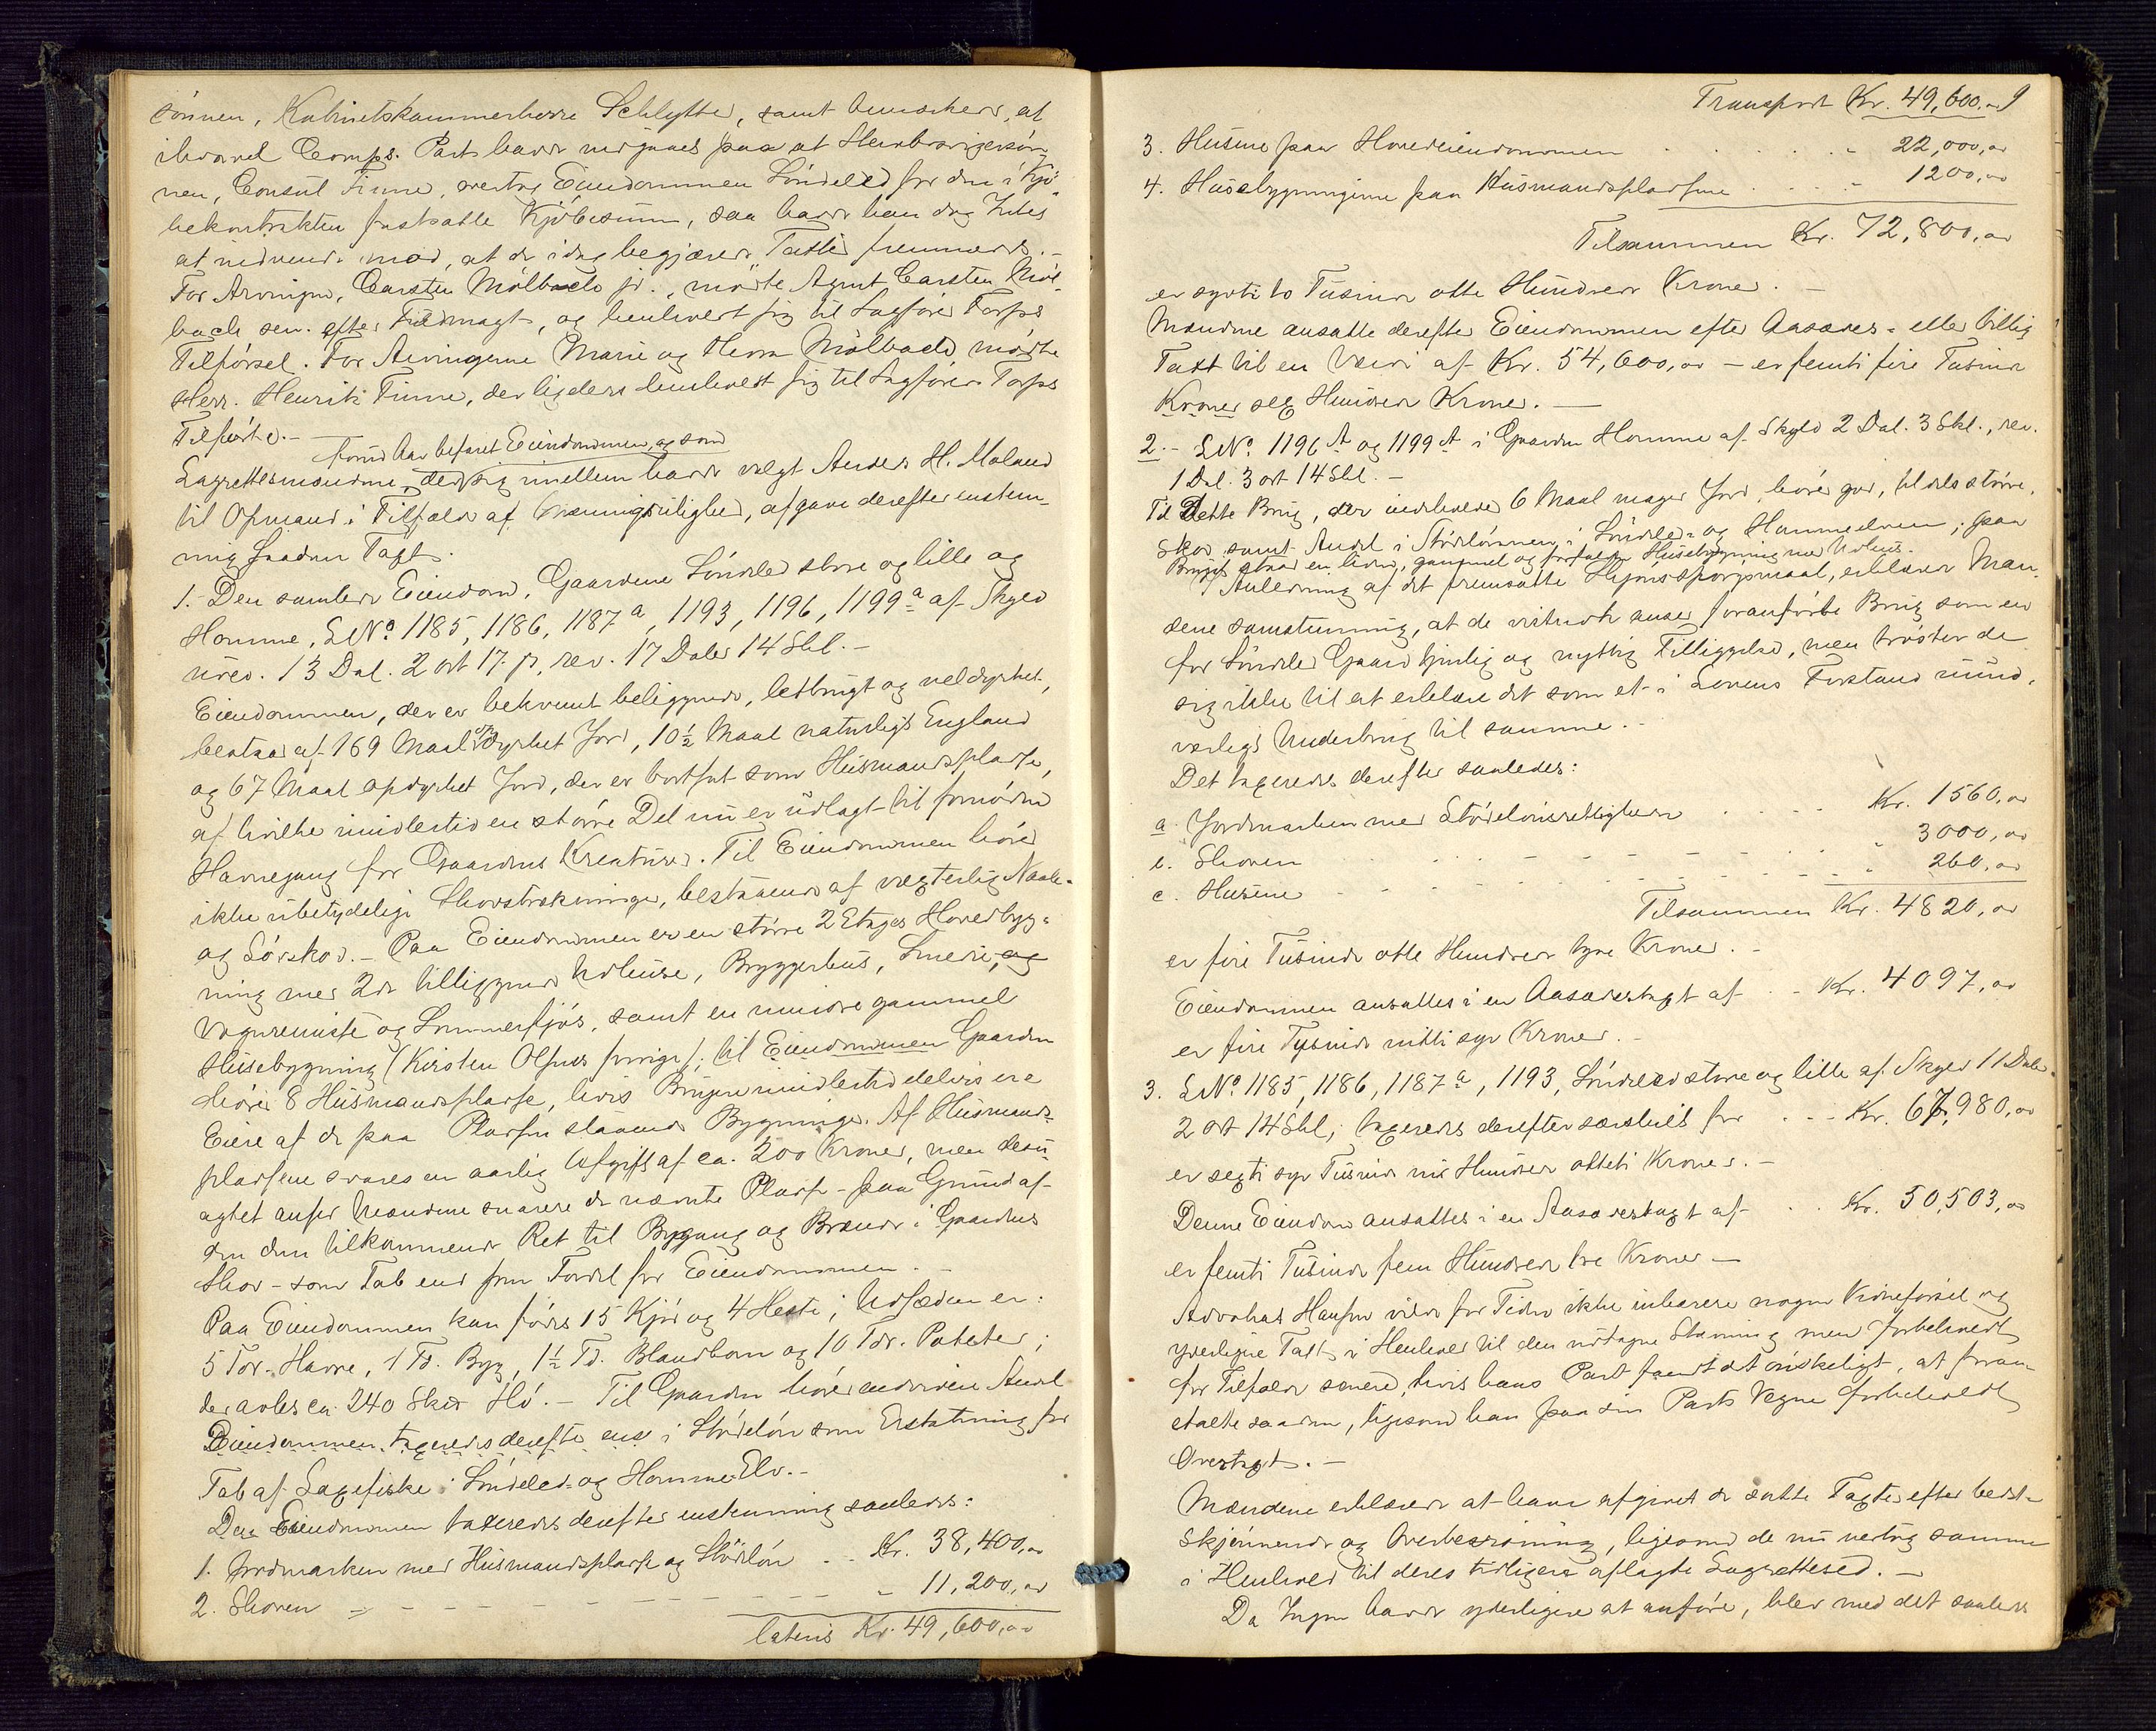 sønnen, Kabinetskammerherre Schlytter, samt bemærker, at
ihvorvel Comps. Part havde meget paa at Hembringersøn
nen, Consul Finne, overtog Eiendommen Søndeled for den i Kjø-
bekontrakten fastsatte Kjøbesum, saa havde han dog Intet
at indvende mod, at de idag begjærede Taxter fremmedes. –
For Arvingen, Carsten Mølbach jr., mødte Agent Carsten Møl-
bach sen. efter Fuldmagt, og henholdt sig til Sagfører Torps
Tilførsel. For Arvingerne Marie og Hem Mølbach mødte
Herr. Henrik Finne, der ligeledes henholdt sig til Sagfører Torps
Tilførte. –
forud har befaret Eiendommen, og som
Lagrettesmændene, der sig imellem havde valgt Anders H. Moland
til Opmand i Tilfælde af Meningsulighed, afgave derefter enstem-
mig saadan Taxt.
1. Den samlede Eiendom, Gaardene Søndeled store og lille og
Homme, LNo 1185, 1186, 1187 a, 1193, 1196, 1199 a af Skyld
urev. 13 Dal. 2 ort 17 β, rev. 17 Daler 14 Skl. –
Eiendommen, der er bekvemt beliggende, letbrugt og veldyrket,
bestaar af 169 Maal opdyrket Jord, 10½ Maal naturligt England
og 67 Maal opdyrket Jord, der er bortsat som Husmandspladse,
af hvilke imidlertid en større Del nu er udlagt til fornøden
Havnegang for Gaardens Kreaturer. Til Eiendommen hører
ikke ubetydelige Skovstrækninger, bestaaende af vægterlig Naale-
og Løvskov. – Paa Eiendommen er en større 2 Etages Hovedbyg-
ning med 2de tilliggende Udhuse, Bryggerhus, Smedie, og
Vognremise og Sommerfjøs, samt en mindre gammel
Husebygning (Kirsten Olsens forrige); til Eiendommen Gaarden
hører 8 Husmandspladse, hvis Brugere imidlertid delvis ere
Eiere af de paa Pladsen staaende Bygninger. Af Husmands-
pladsene svares en aarlig Afgift af ca. 200 Kroner, men desu-
agtet anser Mændene snarere de nævnte Pladse – paa Grund af
den dem tilkommende Ret til Bygning og Brænde i Gaardens
Skov – som Tab end som Fordel for Eiendommen. –
Paa Eiendommen kan fødes 15 Kjør og 4 Heste; Udsæden er:
5 Tdr. Havre, 1 Td. Byg, 1½ Td. Blandkorn og 10 Tdr. Poteter;
der avles ca. 240 Skd Hø. – Til Gaarden hører endvidere Andel
Eiendommen taxeredes derefter ens i Stødeløn som Erstatning for
Tab af Laxefiske i Søndeled- og Homme-Elv. –
Den Eiendommen taxeredes derefter enstemmig saaledes:
1. Jordmarken med Husmandspladse og Stødeløn . . Kr. 38,400,00
2. Skoven – – – – – „ 11,200,00
lateris Kr. 49,600,00
Transport Kr. 49,600,00 9
3. Husene paa Hovedeiendommen . . . . . „ 22,000,00
4. Husebygningerne paa Husmandspladsene . . . . „ 1200,00
Tilsammen Kr. 72,800,00
er sytti to Tusinde otte Hundrede Kroner. –
Mændene ansatte derefter Eiendommen efter Aasædes- eller billig
Taxt til en Værdi af Kr. 54,600,00 – er femti fire Tusinde
Kroner sex Hundrede Kroner. –
2. – LNo. 1196 A og 1199 A i Gaarden Homme af Skyld 2 Dal. 3 Skl., rev.
1 Dal. 3 ort 14 Skl. –
Til Dette Brug, der indeholder 6 Maal mager Jord, hører god, tildels større,
Skov samt Andel i Stødelønnen i Søndeled- og Hommeelven; paa
Bruget staar en liden, gammel og forfalden Husebygning med Udhus.
I Anledning af det fremsatte Skjønsspørgsmaal, erklærer Mæn-
dene samstemmig, at de vistnok anser foranførte Brug som en
for Søndeled Gaard tjenlig og nyttig Tilliggelse, men trøster de
sig ikke til at erklære det som et i Lovens Forstand nund-
værligt Underbrug til samme. –
Det taxeredes derefter saaledes:
a. Jordmarken med Stødelønsrettigheden . . . . Kr. 1560,00
b. Skoven . . . . „ 3000,00
c. Husene – – – – „ 260,00
Tilsammen Kr. 4820,00
er fire Tusinde otte Hundrede tyve Kroner. –
Eiendommen ansattes i en Aasædestaxt af . . Kr. 4097,00
er fire Tusinde nitti syv Kroner. –
3. LNo 1185, 1186, 1187 a, 1193, Søndeled store og lille af Skyld 11 Daler
2 ort 14 Skl, taxeredes derefter særskilt for . . . Kr. 67,980,00
er sexti syv Tusinde ni Hundrede otteti Kroner. –
Denne Eiendom ansattes i en Aasædestaxt af . . Kr. 50,503,00
er femti Tusinde fem Hundrede tre Kroner –
Advokat Hansen vilde for Tiden ikke inbarere nogen Vidneførsel og
yderligere Taxt i Henhold til den udtagne Stævning men forbeholdt
for Tilfælde senere, hvis hans Part fandt det ønskeligt, at foran-
stalte saadan, ligesom han paa sin Parts Vegne forbeholdt
Overtaxt. –
Mændene erklærede at have afgivet de satte Taxter efter bedste
Skjønnende og Overbevisning, ligesom de nu vedtog samme
i Henhold til deres tidligere aflagte Lagrettesed. –
Da Ingen havde yderligere at anføre, blev med det saaledes